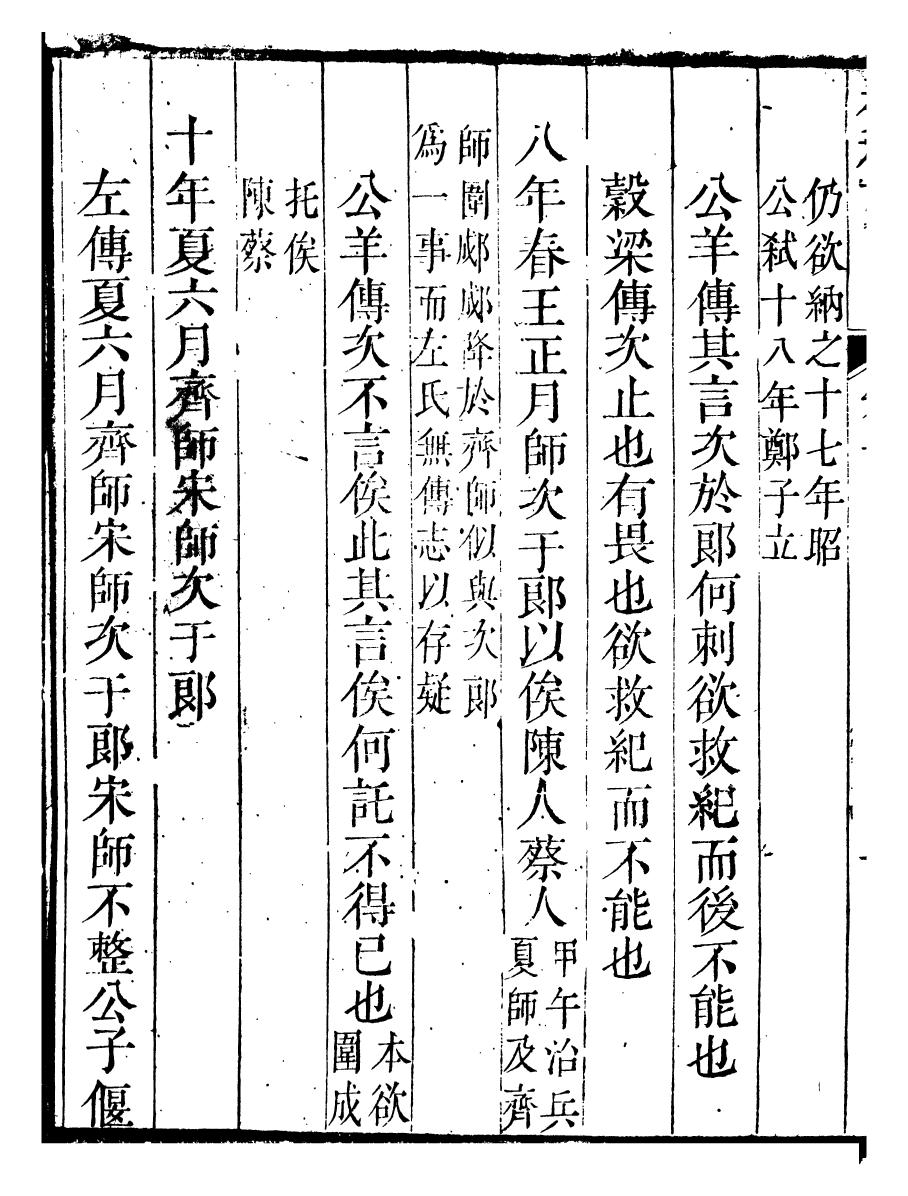 仍欲納之十七年昭
公弑十八年鄭子立
公羊傳其言次於郎何刺欲救紀而後不能也
穀梁傳次止也有畏也欲救紀而不能也
八年春王正月師次于郎以俟陳人蔡人
甲午治兵
夏師及齊
師圍郕郕降於齊師似與次郎
爲一事而左氏無傳志以存疑
公羊傳次不言俟此其言俟何託不得已也
本欲
圍成
托俟
陳蔡
十年夏六月齊師宋師次于郎
左傳夏六月齊師宋師次于郎宋師不整公子偃